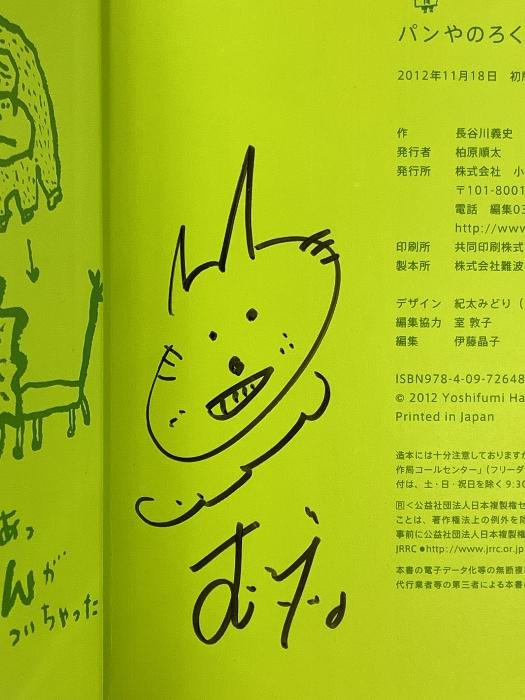 パンやのろく
2012年11月18日 初版
作 長谷川義史
発行者 柏原順太
発行所 株式会社 小
〒101-8001
電話 編集03
http://www
印刷所 共同印刷株式
製本所 株式会社難波
デザイン 紀太みどり(
編集協力 室 敦子
編集 伊藤晶子
ISBN978-4-09-72648
© 2012 Yoshifumi Ha
Printed in Japan
造本には十分注意しておりますが
作局コールセンター」(フリーダ
付は、土・日・祝日を除く9:30
<公益社団法人日本複製権セ
ことは、著作権法上の例外を除
事前に公益社団法人日本複製権
JRRC●http://www.jrrc.or.jp
本書の電子データ化等の無断複
代行業者等の第三者による本書
あっ
んが…
ついちゃった